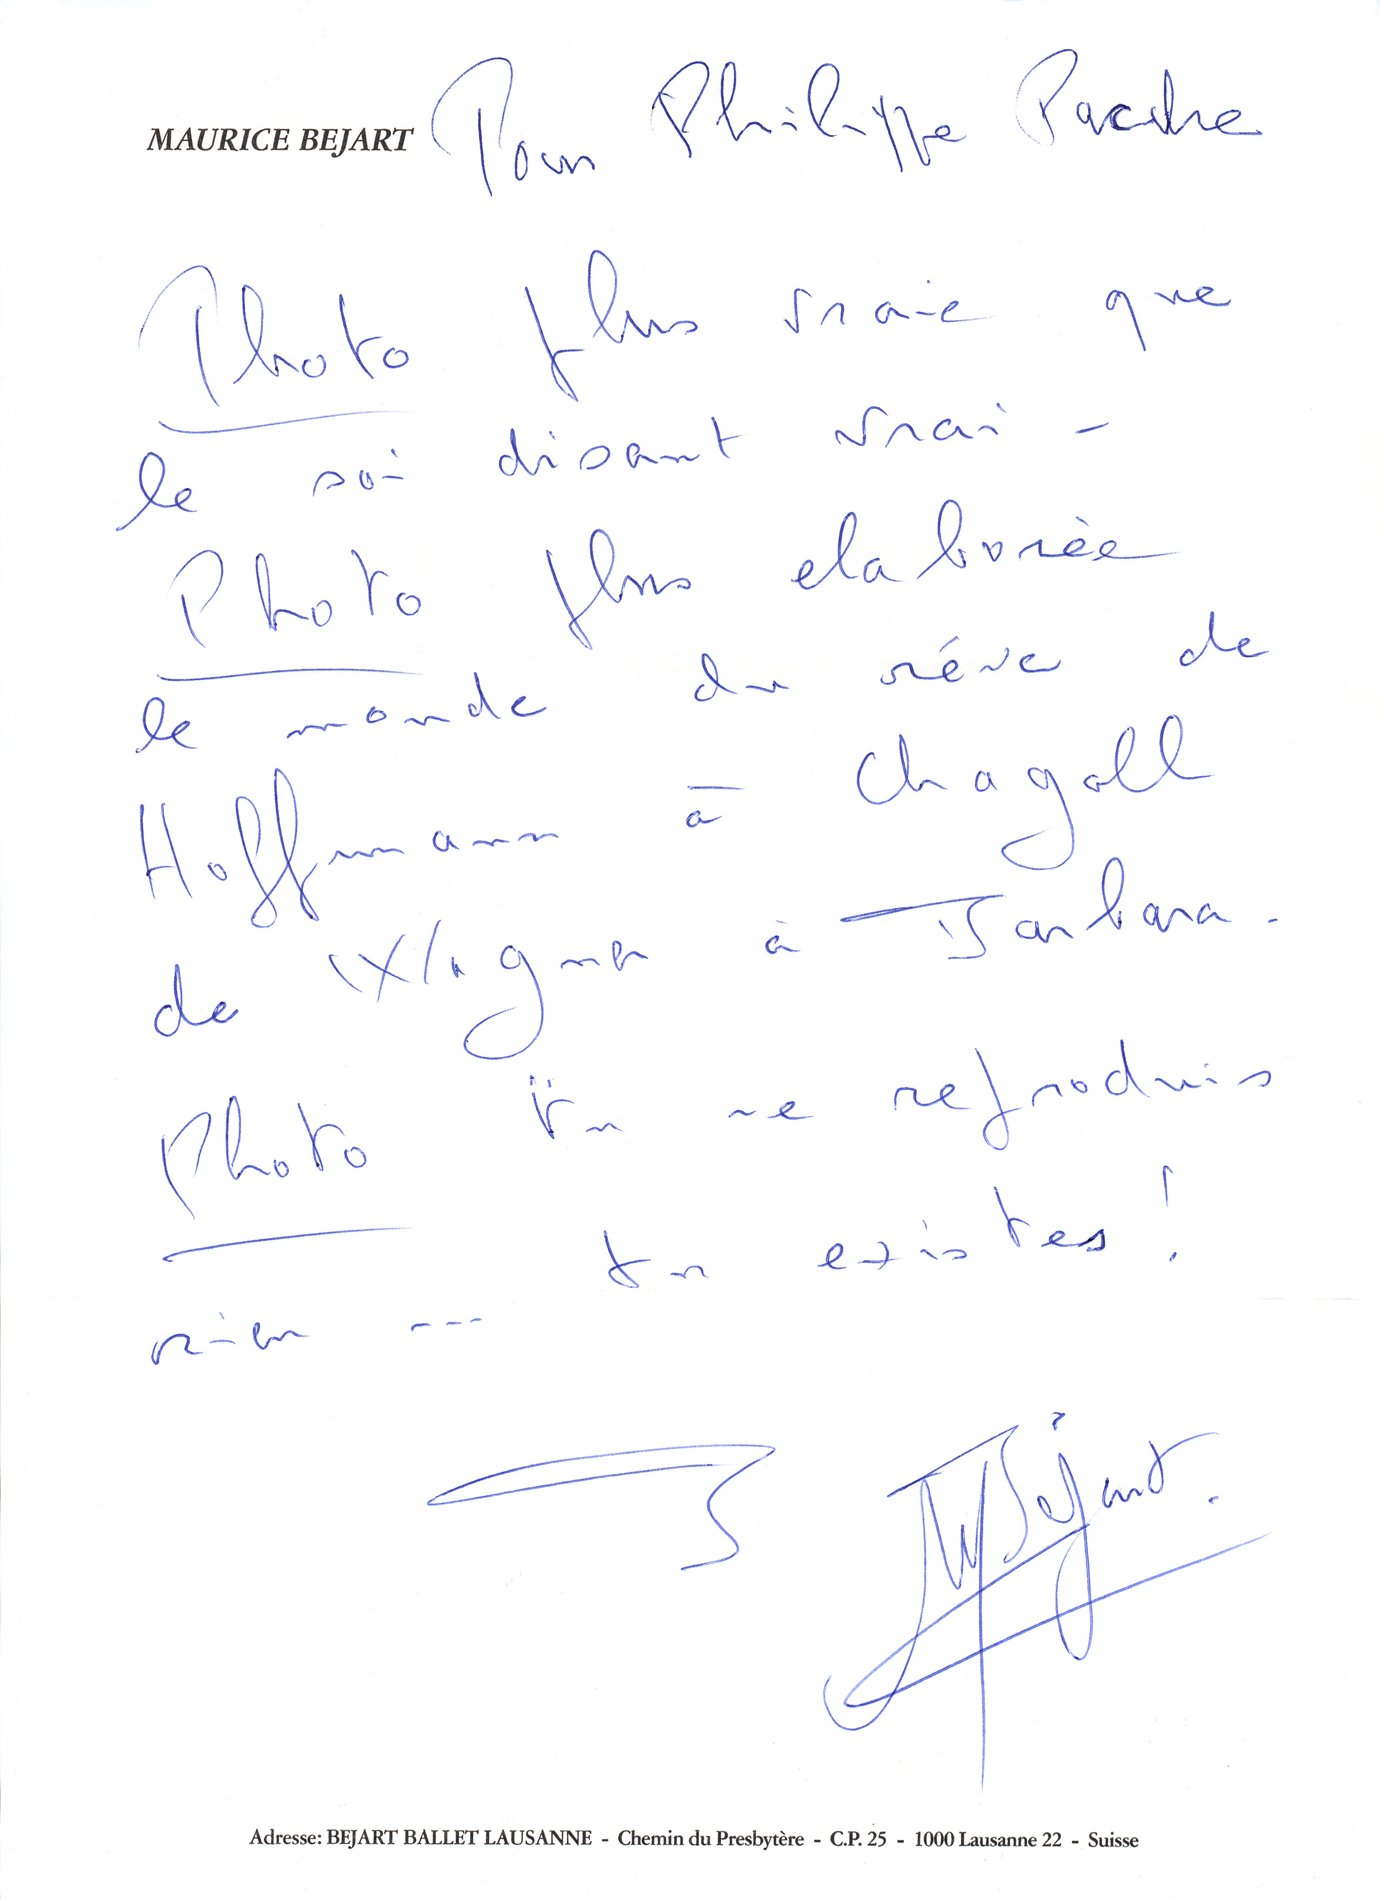 MAURICE BEJART Pour Philippe Pache
Photo plus vraie que
le soi disant vrai -
Photo plus elaborée
le monde du réve de
Hoffmann à Chagall
de Wagner à Barbara.
Photo tu ne reproduis
rien --- tu existes !
M Béjart.
Adresse: BEJART BALLET LAUSANNE - Chemin du Presbytère - C.P. 25 - 1000 Lausanne 22 - Suisse